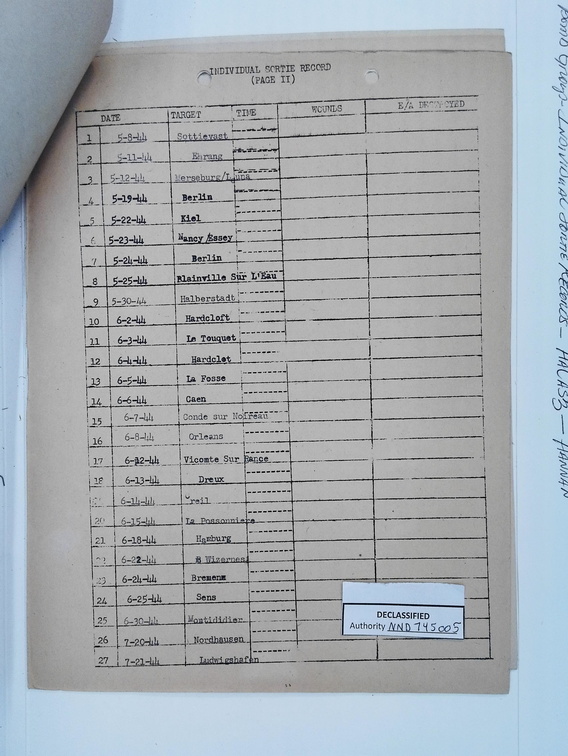 INDIVIDUAL SORTIE RECORD
(PAGE II)
DATE TARGET TIME WOUNDS E/A DESTROYED
1 5-8-44 Sottievast
2 5-11-44 Ehrang
3 5-12-44 Merseburg/Luna
4 5-19-44 Berlin
5 5-22-44 Kiel
6 5-23-44 Nancy/Essey
7 5-24-44 Berlin
8 5-25-44 Blainville Sur L'Eau
9 5-30-44 Halberstadt
10 6-2-44 Hardcloft
11 6-3-44 Le Touquet
12 6-4-44 Hardclet
13 6-5-44 La Fosse
14 6-6-44 Caen
15 6-7-44 Conde sur Noireau
16 6-8-44 Orleans
17 6-12-44 Vicomte Sur Rance
18 6-13-44 Dreux
19 6-14-44 Creil
20 6-15-44 La Possonniere
21 6-18-44 Hamburg
22 6-22-44 Wizernes
23 6-24-44 Bremen
24 6-25-44 Sens
25 6-30-44 Montididier
26 7-20-44 Nordhausen
27 7-21-44 Ludwigshafen
DECLASSIFIED
Authority NND 745005
Bomb Group - Individual Sortie Records -